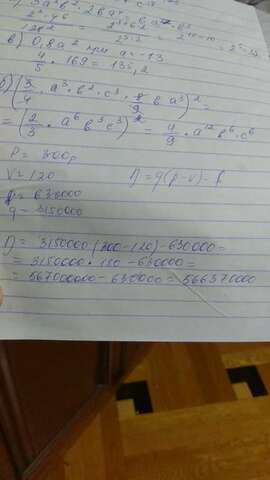 в) 0,8a² при a = -13
4/5 · 169 = 135,2
б) (3/4 · a³ · b² · c³ · 8/9 b a³)² =
= (2/3 · a⁶ b³ c³)² = 4/9 · a¹² b⁶ · c⁶
P = 300р
V = 120 П = q(p-v) - f
f = 630000
q = 3150000
П = 3150000 (300-120) - 630000 =
= 3150000 · 180 - 630000 =
= 567000000 - 630000 = 566370000